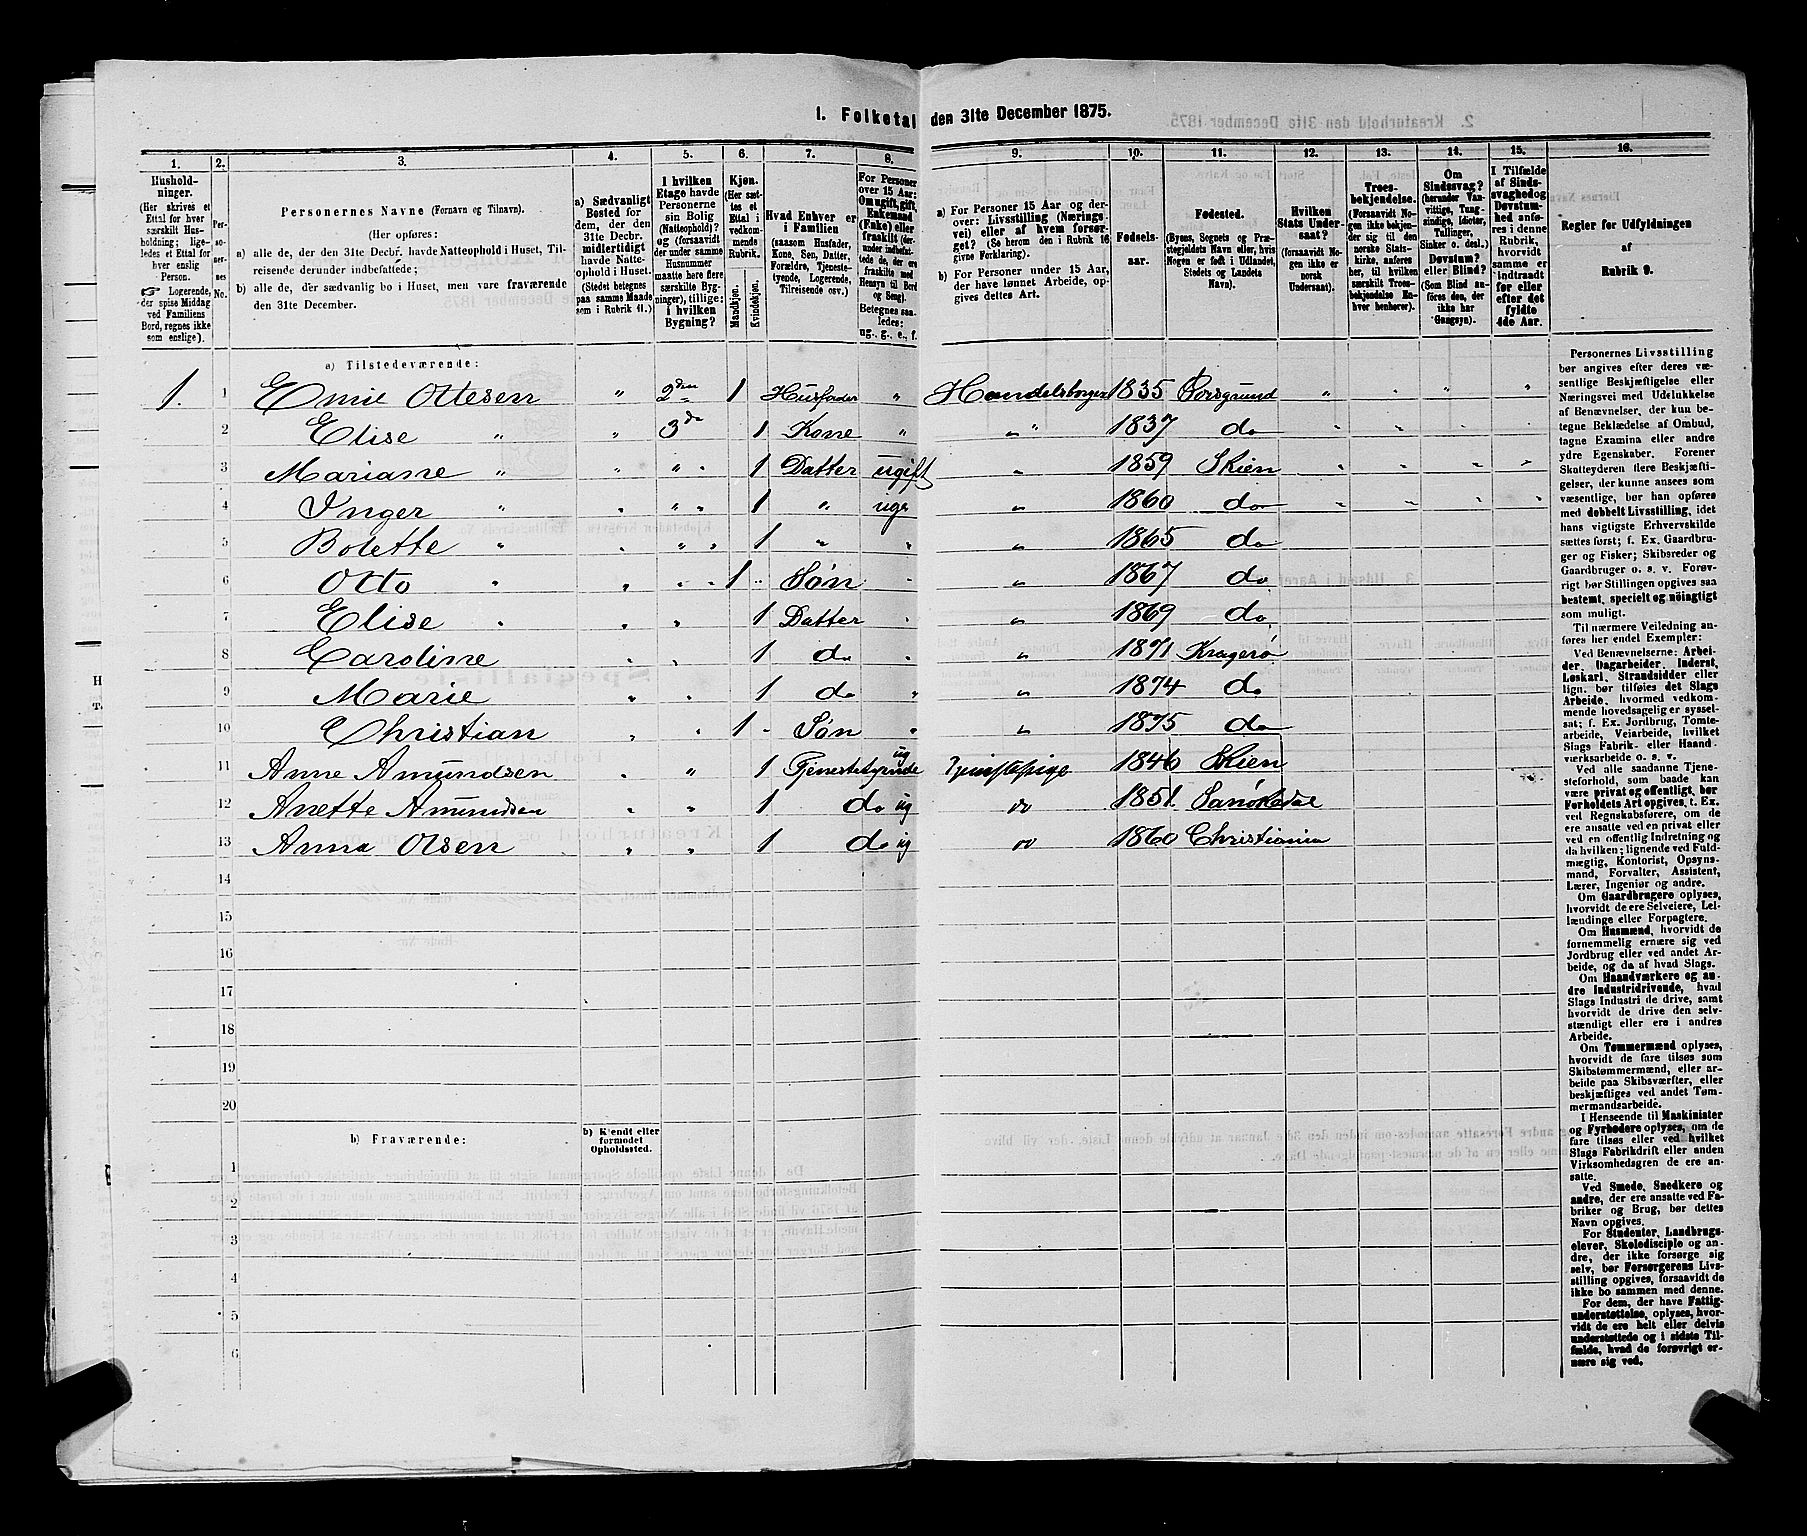 1. Folketal den 31te December 1875.
1. 2. 3. 4. 5. 6. 7. 8. 9. 10. 11. 12. 13. 14. 15. 16.
Hushold-
ninger.
(Her skrives et
Ettal for hver
særskilt Hus-
holdning; lige-
ledes et Ettal for
hver enslig
Person.
☞ Logerende,
der spise Middag
ved Familiens
Bord, regnes ikke
som enslige).
Per-
so-
ner-
nes
No.
Personernes Navne (Fornavn og Tilnavn).
(Her opføres:
a) alle de, der den 31te Decbr. havde Natteophold i Huset, Til-
reisende derunder indbefattede;
b) alle de, der sædvanlig bo i Huset, men vare fraværende
den 31te December.
a) Sædvanligt
Bosted for
dem, der den
31te Decbr.
midlertidigt
havde Natte-
ophold i Huset.
(Stedet betegnes
paa samme Maade
som i Rubrik 11.)
I hvilken
Etage havde
Personerne
sin Bolig
(Natteophold)?
og (forsaavidt
der under samme
Husnummer
maatte høre flere
særskilte Byg-
ninger), tillige:
i hvilken
Bygning?
Kjøn.
(Her sæt-
tes et
Ettal i
vedkom-
mende
Rubrik.
Mandkjøn.
Kvindekjøn.
Hvad Enhver er
i Familien
(saasom Husfader,
Kone, Søn, Datter,
Forældre, Tjeneste-
tyende, Logerende,
Tilreisende osv.)
For Personer
over 15 Aar:
Om ugift, gift,
Enkemand
(Enke) eller
fraskilt (der-
under indbefat-
tede de, der ere
fraskilte med
Hensyn til Bord
og Seng).
Betegnes saa-
ledes:
ug., g., e., f.
a) For Personer 15 Aar og der-
over: Livsstilling (Nærings-
vei) eller af hvem forsør-
get? (Se herom den i Rubrik 16
givne Forklaring).
b) For Personer under 15 Aar,
der have lønnet Arbeide, op-
gives dettes Art.
Fødsels-
aar.
Fødested.
(Byens, Sognets og Præ-
stegjeldets Navn eller, hvis
Nogen er født i Udlandet,
Stedets og Landets
Navn).
Hvilken
Stats Under-
saat?
(forsaavidt No-
gen ikke er
norsk
Undersaat).
Troes-
bekjendelse.
(Forsaavidt No-
gen ikke bekjen-
der sig til den
norske Stats-
kirke, anføres
her, til hvilken
særskilt Troes-
bekjendelse En-
hver henhører).
Om
Sindssvag?
(herunder Van-
vittige, Tung-
sindige, Idioter,
Sinker o. desl.)
Døvstum?
eller Blind?
(Som Blind an-
føres den, der
ikke har
Gangsyn).
I Tilfælde
af Sinds-
svaghed og
Døvstum-
hed anfø-
res i denne
Rubrik,
hvorvidt
samme er
indtraadt
før eller
efter det
fyldte
4de Aar.
Regler for Udfyldningen
af
Rubrik 9.
a) Tilstedeværende:
1. 1 Emil Ottesen " 2den 1 Husfader " Handelsborger 1835 Porsgrund " " " "
2 Elise " " 3de 1 Kone " " " 1837 do " " " "
3 Mariane " " " " 1 Datter ugift " 1859 Skien " " " "
4 Inger " " " " 1 " ugi " 1860 do " " " "
5 Bolette " " " " 1 " " " 1865 do
6 Otto " " " " 1 " Søn " " 1867 do
7 Elise " " " 1 Datter " " 1869 do
8 Caroline " " 1 do " " 1871 Kragerø
9 Marie " " 1 do " " 1874 do
10 Christian " " 1 " Søn " " 1875 do
11 Anne Amundsen " " 1 Tjenestetyende ug Tjenestepige 1846 Skien
12 Anette Amundsen " " 1 do ug do 1851 Sanøkedal
13 Anna Olsen " " 1 do ug do 1860 Christiania
14
15
16
17
18
19
20
b) Fraværende:
b) Kjendt eller
formodet
Opholdssted.
1
2
3
4
5
6
Personernes Livsstilling
bør angives efter deres væ-
sentlige Beskjæftigelse eller
Næringsvei med Udelukkelse
af Benævnelser, der kun be-
tegne Beklædelse af Ombud,
tagne Examina eller andre
ydre Egenskaber. Forener
Skatteyderen flere Beskjæfti-
gelser, der kunne ansees som
væsentlige, bør han opføres
med dobbelt Livsstilling, idet
hans vigtigste Erhvervskilde
sættes først; f. Ex. Gaardbru-
ger og Fisker; Skibsreder og
Gaardbruger o. s. v. Forøv-
rigt bør Stillingen opgives saa
bestemt, specielt og nöiagtigt
som muligt.
Til nærmere Veiledning an-
føres her endel Exempler:
Ved Benævnelserne: Arbei-
der, Dagarbeider, Inderst,
Løskarl, Strandsidder eller
lign. bør tilføies det Slags
Arbeide, hvormed vedkom-
mende hovedsagelig er syssel-
sat; f. Ex. Jordbrug, Tomte-
arbeide, Veiarbeide, hvilket
Slags Fabrik- eller Haand-
værksarbeide o. s. v.
Ved alle saadanne Tjene-
steforhold, som baade kan
være privat og offentligt, bør
Forholdets Art opgives, t. Ex.
ved Regnskabsførere, om de
ere ansatte ved en privat eller
ved en offentlig Indretning og
da hvilken; lignende ved Fuld-
mægtig, Kontorist, Opsyns-
mand, Forvalter, Assistent,
Lærer, Ingeniør og andre.
Om Gaardbrugere oplyses,
hvorvidt de ere Selveiere, Lei-
lændinge eller Forpagtere.
Om Husmænd, hvorvidt de
fornemmelig ernære sig ved
Jordbrug eller ved andet Ar-
beide, og da af hvad Slags.
Om Haandværkere og an-
dre Industridrivende, hvad
Slags Industri de drive, samt
hvorvidt de drive den selv-
stændigt eller ere i andres
Arbeide.
Om Tømmermænd oplyses,
hvorvidt de fare tilsøs som
Skibstømmermænd, eller ar-
beide paa Skibsværfter, eller
beskjæftiges ved andet Tøm-
mermandsarbeide.
I Henseende til Maskinister
og Fyrbødere oplyses, om de
fare tilsøs eller ved hvilket
Slags Fabrikdrift eller anden
Virksomhedsgren de ere an-
satte.
Ved Smede, Snedkere og
andre, der ere ansatte ved Fa-
briker og Brug, bør dettes
Navn opgives.
For Studenter, Landbrugs-
elever, Skoledisciple og an-
dre, der ikke forsørge sig
selv, bør Forsørgerens Livs-
stilling opgives, forsaavidt de
ikke bo sammen med denne.
For dem, der have Fattig-
understøttelse, oplyses, hvor-
vidt de ere helt eller delvis
understøttede og i sidste Til-
fælde, hvad de forøvrigt er-
nære sig ved.